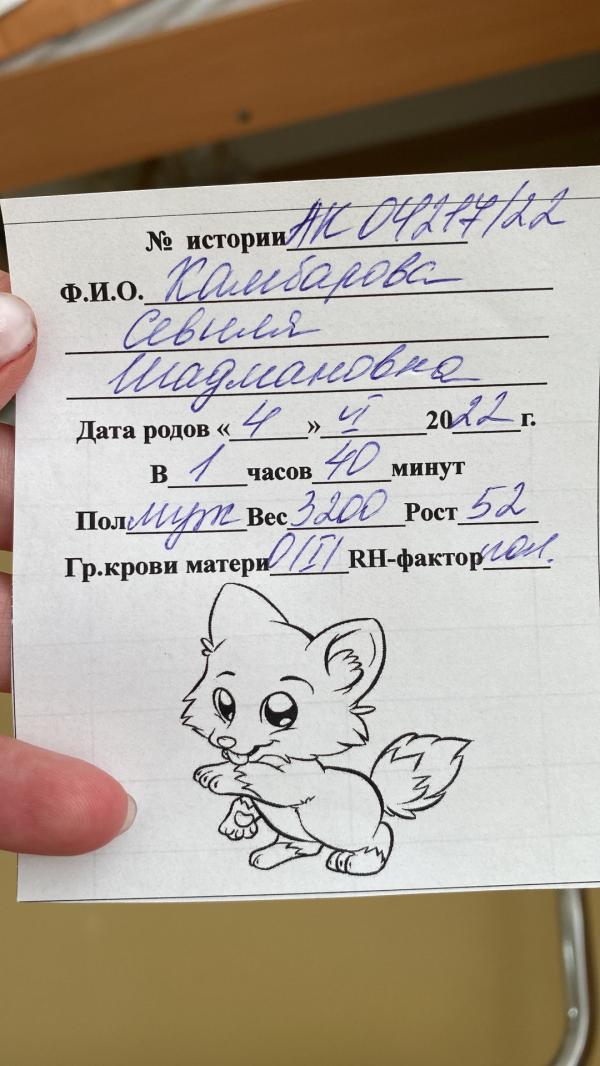 № истории АК 04217/22
Ф.И.О. Камбарова
Севиля
Шадмановна
Дата родов « 4 » VI 2022 г.
В 1 часов 40 минут
Пол муж Вес 3200 Рост 52
Гр.крови матери 0(I) RH-фактор пол.